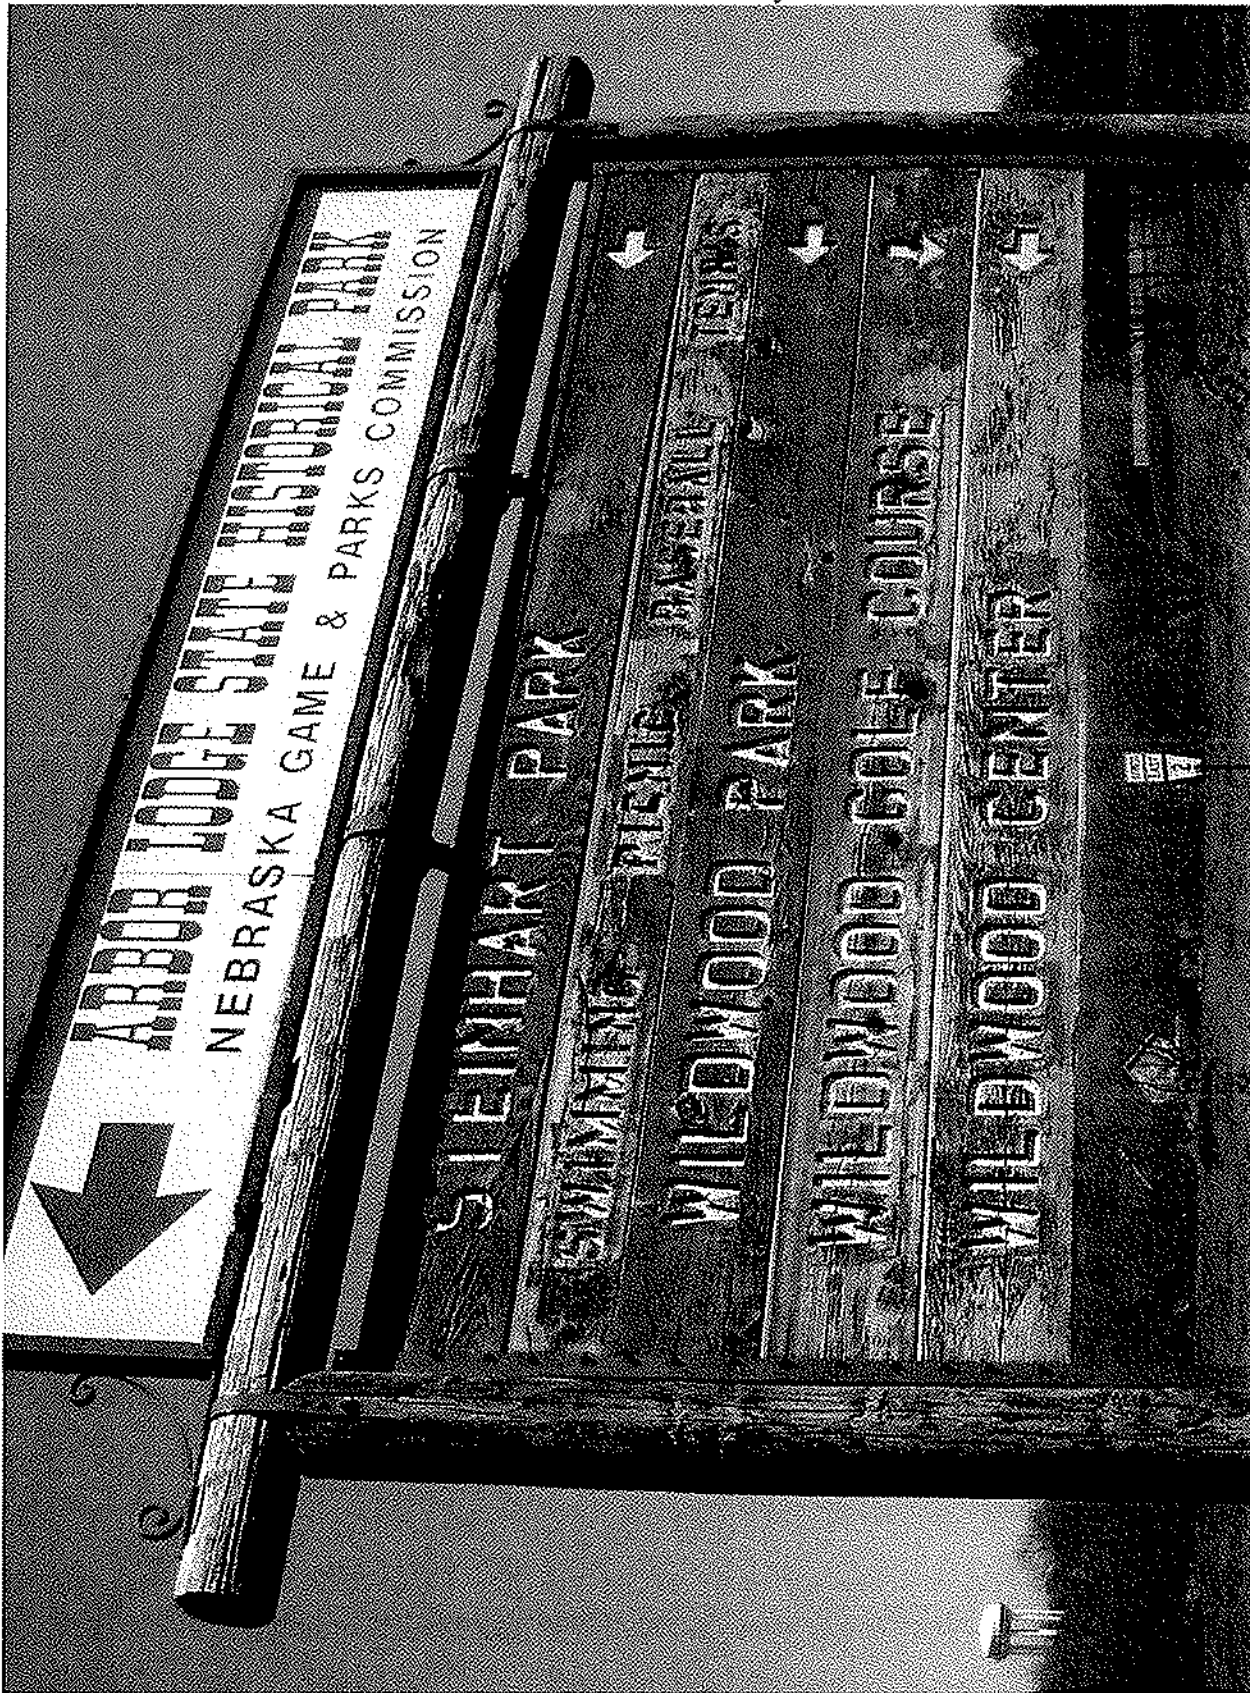 ARBOR LODGE STATE HISTORICAL PARK
NEBRASKA GAME & PARKS COMMISSION
STEINHART PARK
SWIMMING PICNIC BASEBALL TENNIS
WILDWOOD PARK
WILDWOOD GOLF COURSE
WILDWOOD CENTER